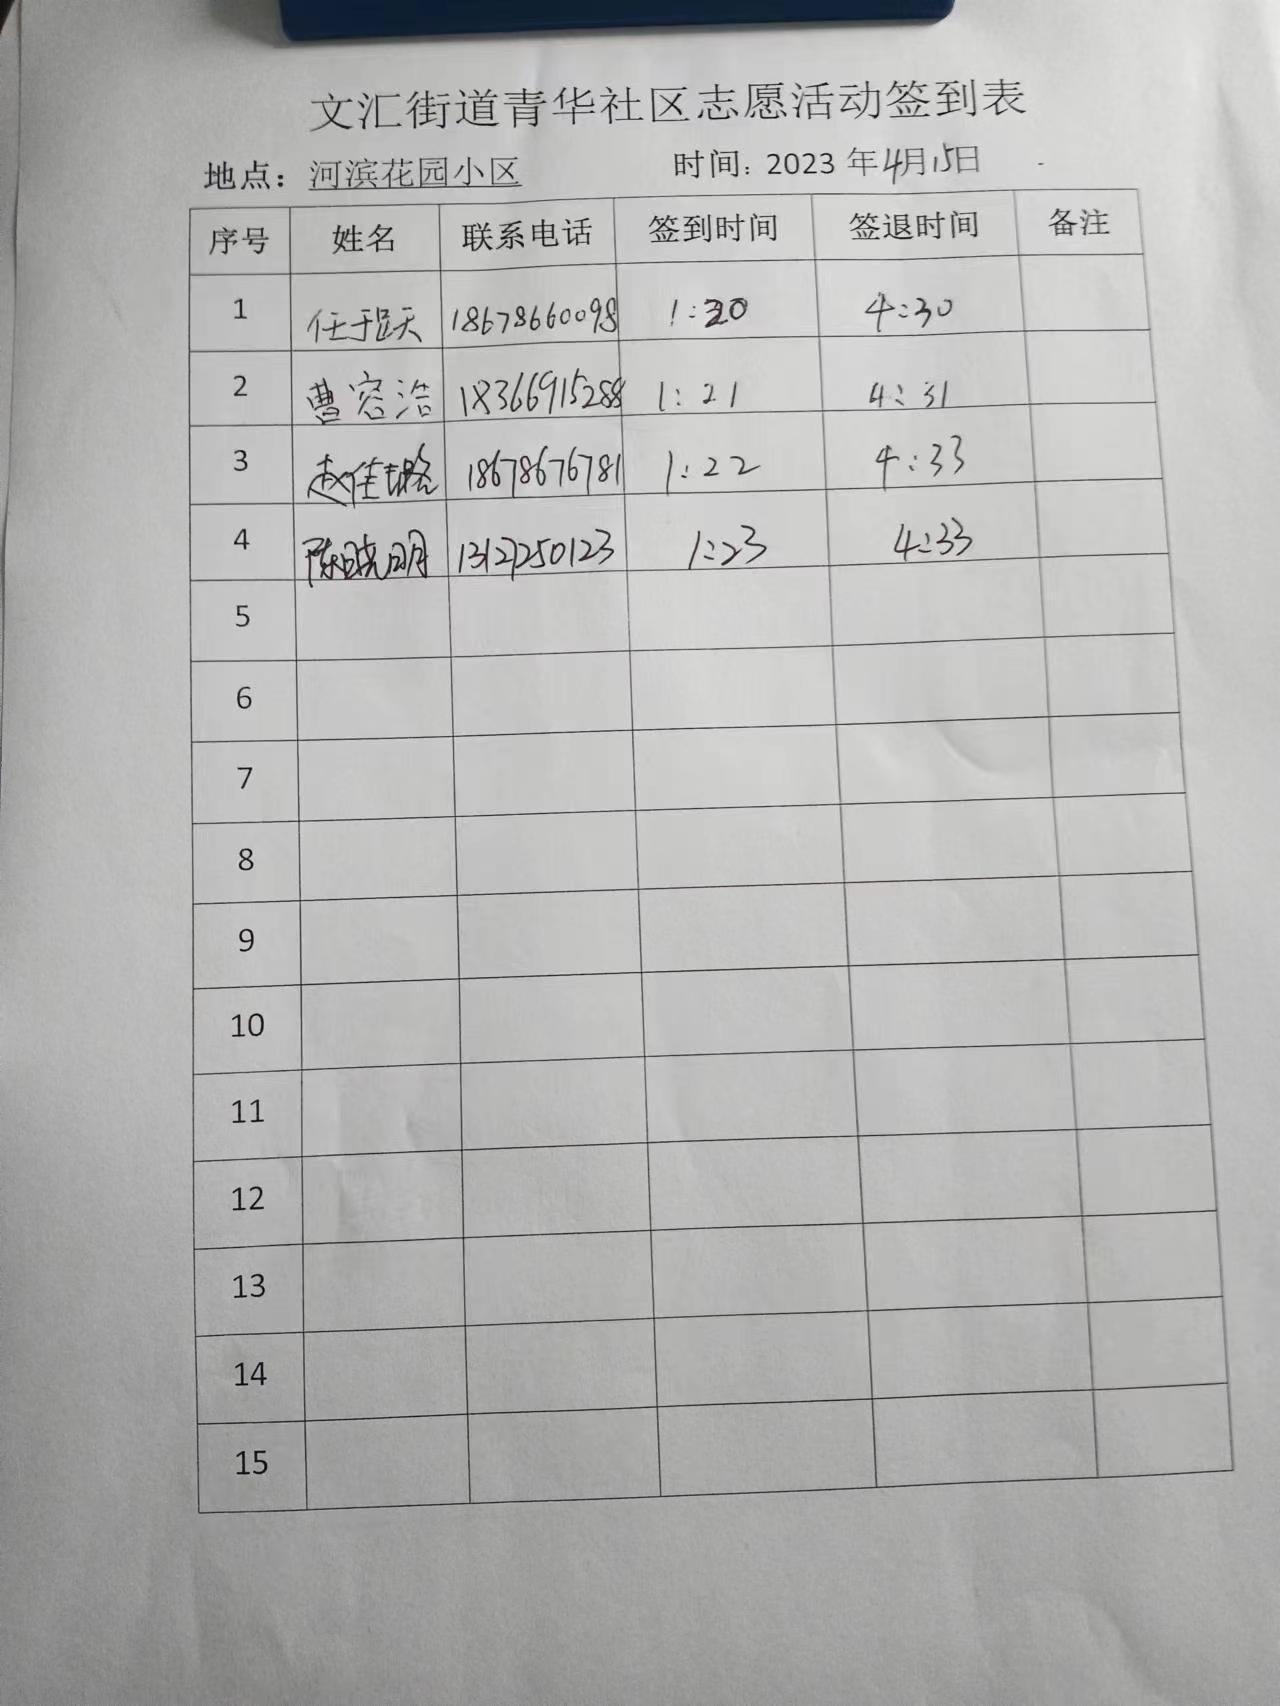 文汇街道青华社区志愿活动签到表
地点：河滨花园小区 时间：2023 年4月15日
序号 姓名 联系电话 签到时间 签退时间 备注
1 任于跃天 18678660098 1:20 4:30
2 曹容浩 18366915288 1:21 4:31
3 赵佳璐 18678676781 1:22 4:33
4 陈晓明 13127250123 1:23 4:33
5
6
7
8
9
10
11
12
13
14
15